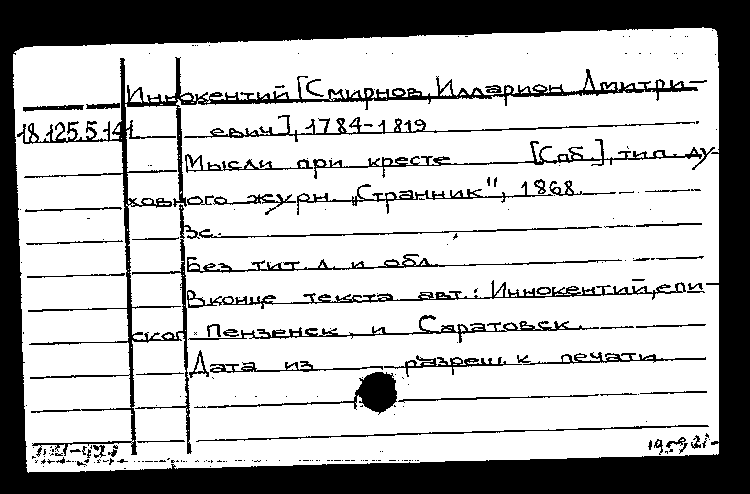 Иннокентий [Смирнов, Илларион Дмитри-
18.125.5.141 евич], 1784-1819
Мысли при кресте [Спб.], тип. ду-
ховного журн. „Странник", 1868.
3с.
Без тит. л. и обл.
В конце текста авт.: Иннокентий, епи-
скоп Пензенск. и Саратовск.
Дата из разреш. к печати